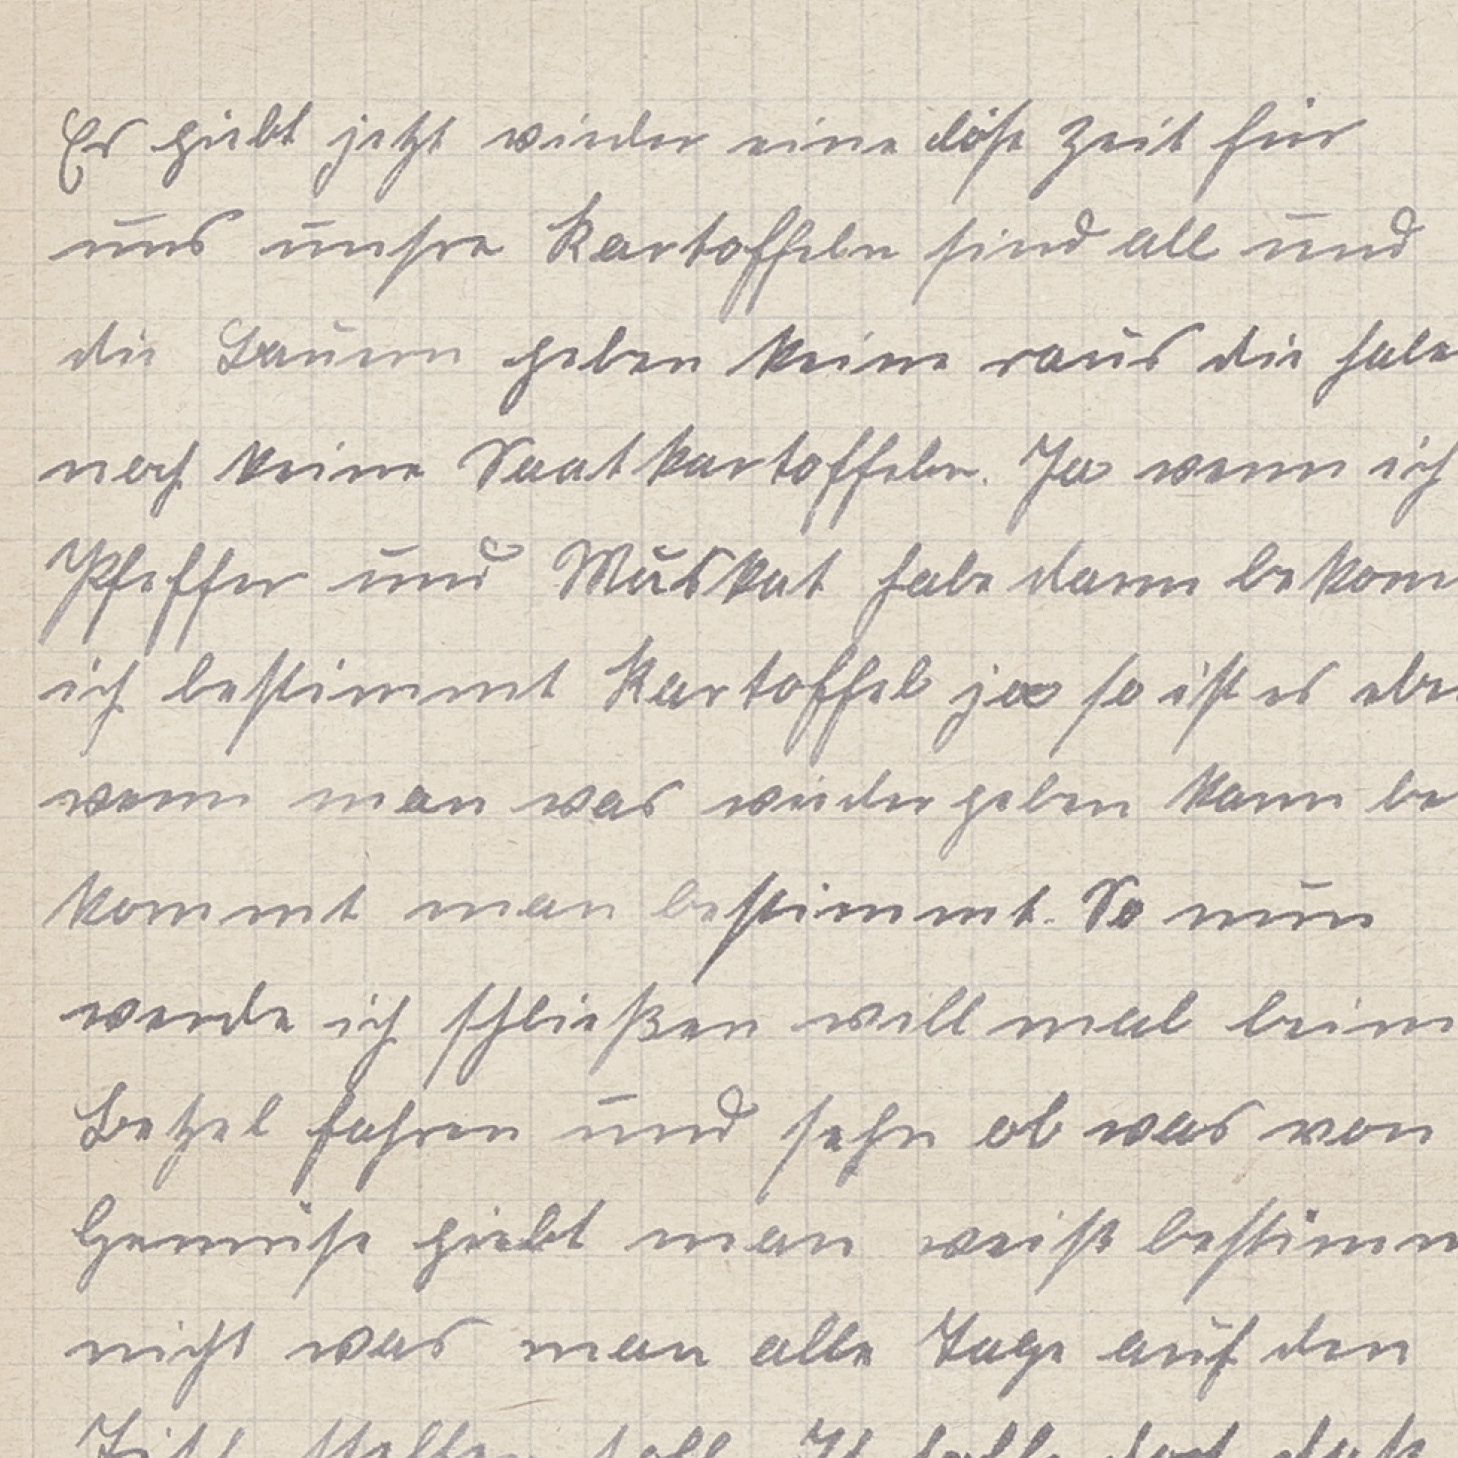 Es giebt jetzt wieder eine böse Zeit für
uns unsre Kartoffeln sind all und
die Bauern geben keine raus die habe
noch keine Saatkartoffeln. Ja wenn ich
Pfeffer und Muskat habe dann bekom
ich bestimmt Kartoffel ja so ist es ebe
wenn man was wiedergeben kann be
kommt man bestimmt. So nun
werde ich schließen will mal beim
Betzel fahren und sehn ob was von
Gemüse giebt man weiß bestimm
nicht was man alle Tage auf den
Tisch stellen soll. Ich hoffe doch daß